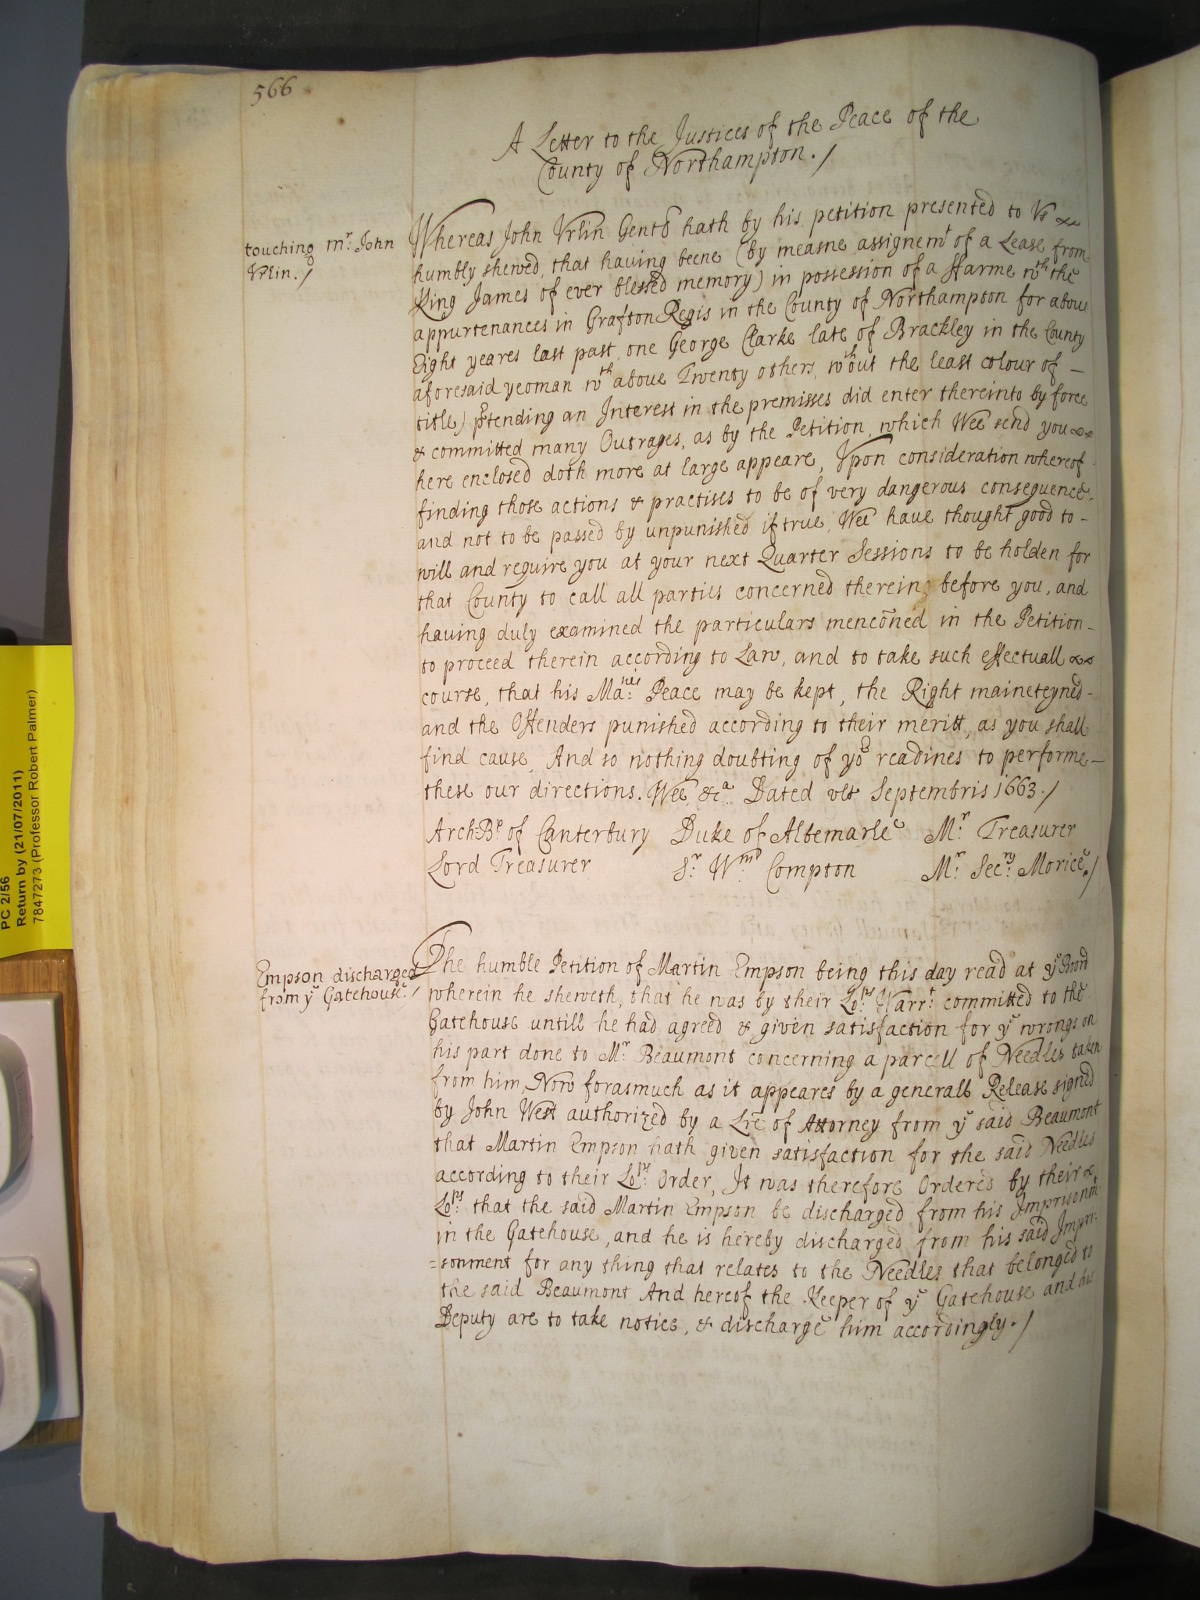 566
A Letter to the Justices of the Peace of the
County of Northampton./
touching mr. John
Vrlin./
Whereas John Vrlin Gent hath by his petition presented to Vs
humbly shewed, that having beene (by measne assignemt of a Lease from
King James of ever blessed memory) in possession of a ffarme wth the
appurtenances in Grafton Regis in the County of Northampton for about
Eight yeares last past, one George Clarke late of Brackley in the County
aforesaid yeoman wth above Twenty others, wthout the least colour of -
title) ptending an Interest in the premisses did enter thereinto by force
& committed many Outrages, as by the Petition, which Wee send you
here enclosed doth more at large appeare, Vpon consideration whereof
finding those actions & practises to be of very dangerous consequence,
and not to be passed by unpunished if true, Wee have thought good to -
will and require you at your next Quarter Sessions to be holden for
that County to call all parties concerned therein before you, and
having duly examined the particulars mencõned in the Petition -
to proceed therein according to Law, and to take such effectuall
course, that his Ma:ties Peace may be kept, the Right maineteyned -
and the Offenders punished according to their meritt, as you shall
find cause, And so nothing doubting of yor readines to performe -
these our directions. Wee &ca. Dated vlt Septembris 1663./
Arch:Bp of Canterbury Duke of Albemarle Mr. Treasurer
Lord Treasurer Sr. Wm Compton Mr. Secry Morice./
Empson discharged
from ye Gatehouse./
The humble Petition of Martin Empson being this day read at ye Board
wherein he sheweth, that he was by their Lo:ps Warrt committed to the
Gatehouse untill he had agreed & given satisfaction for ye wrongs on
his part done to Mr. Beaumont concerning a parcell of Needles taken
from him, Now forasmuch as it appeares by a generall Release signed
by John West authorized by a Lre of Attorney from ye said Beaumont
that Martin Empson hath given satisfaction for the said Needles
according to their Lo:ps Order, It was therefore Ordered by their
Lo:ps that the said Martin Empson be discharged from his Imprisonmt
in the Gatehouse, and he is hereby discharged from his said Impri-
=sonment for any thing that relates to the Needles that belonged to
the said Beaumont And hereof the Keeper of ye Gatehouse and his
Deputy are to take notice, & discharge him accordingly./
PC 2/56
Return by (21/07/2011)
7847273 (Professor Robert Palmer)